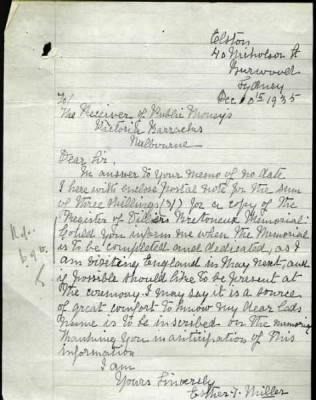 Elston
40 Nicholson St
Burwood
Sydney
Dec 10th 1935
To/
The Receiver of Public Moneys
Victoria Barracks
Melbourne
Dear Sir,
In answer to your memo of no date
I here with enclose postal note for the sum
of three shillings (3/) for a copy of the
Register of Villers Bretoneux Memorial
Could you inform me when the Memorial
is to be completed and dedicated, as I
am visiting England in May next, and
if possible should like to be present at
the ceremony. I may say it is a source
of great comfort to know my dear lads
name is to be inscribed on the memorial
Thanking you in anticipation of this
information
I am
Yours Sincerely
Esther T. Miller